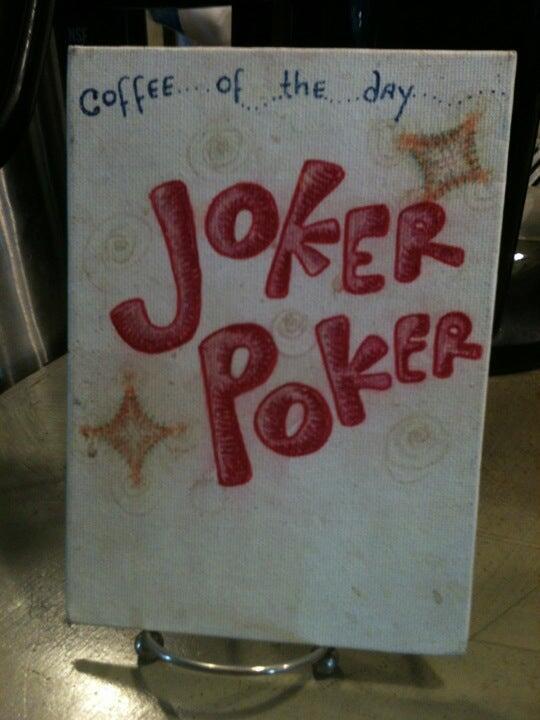 Coffee.... of the day
JOKER
POKER
NSF